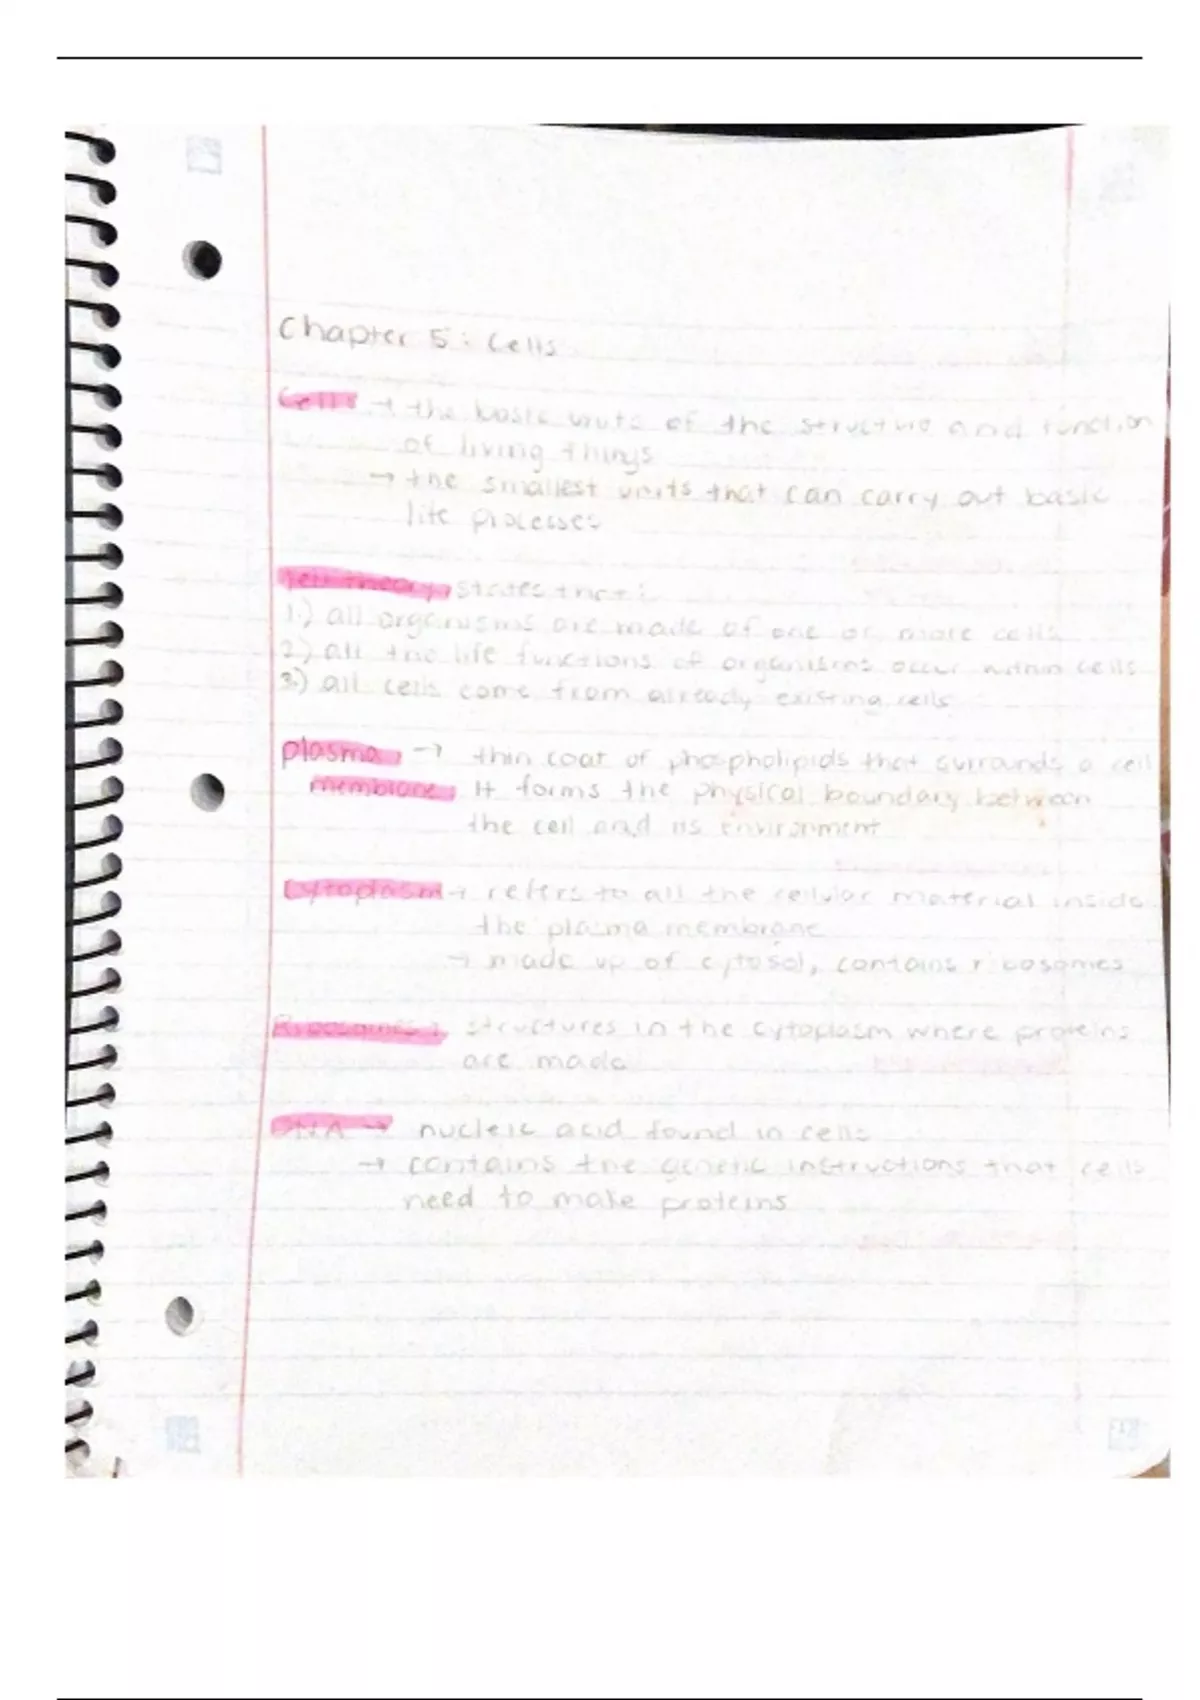 Chapter 5: Cells
Cells → the basic units of the structure and function
of living things
→ the smallest units that can carry out basic
life processes
Cell theory, states that:
1.) all organisms are made of one or more cells
2.) all the life functions of organisms occur within cells
3.) all cells come from already existing cells
plasma → thin coat of phospholipids that surrounds a cell
membrane It forms the physical boundary between
the cell and its environment
Cytoplasm → refers to all the cellular material inside
the plasma membrane
→ made up of cytosol, contains ribosomes
Ribosomes structures in the cytoplasm where proteins
are made
DNA → nucleic acid found in cells
→ contains the genetic instructions that cells
need to make proteins